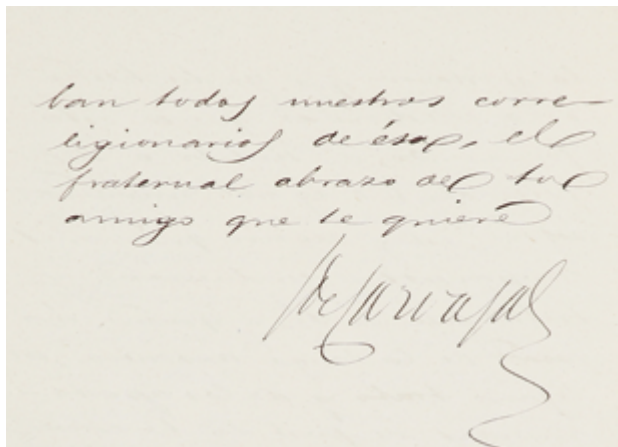 ban todos nuestros corre-
ligionarios de ésa, el
fraternal abrazo de tu
amigo que te quiere
Carvajal